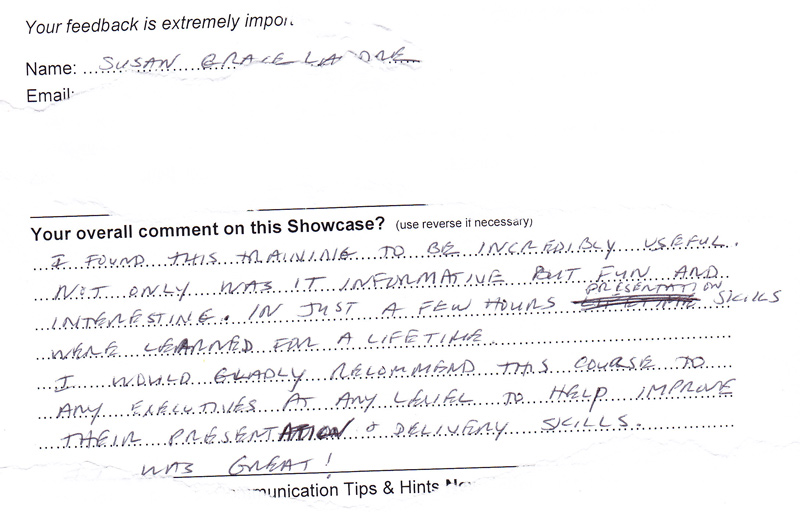 Your feedback is extremely impor
Name: SUSAN GRACE
Email:
Your overall comment on this Showcase? (use reverse if necessary)
I FOUND THIS TRAINING TO BE INCREDIBLY USEFUL.
NOT ONLY WAS IT INFORMATIVE BUT FUN AND
INTERESTING. IN JUST A FEW HOURS PRESENTATION SKILLS
WERE LEARNED FOR A LIFETIME
I WOULD GLADLY RECOMMEND THIS COURSE TO
ANY EXECUTIVES AT ANY LEVEL TO HELP IMPROVE
THEIR PRESENTATION & DELIVERY SKILLS.
WAS GREAT!
munication Tips & Hints